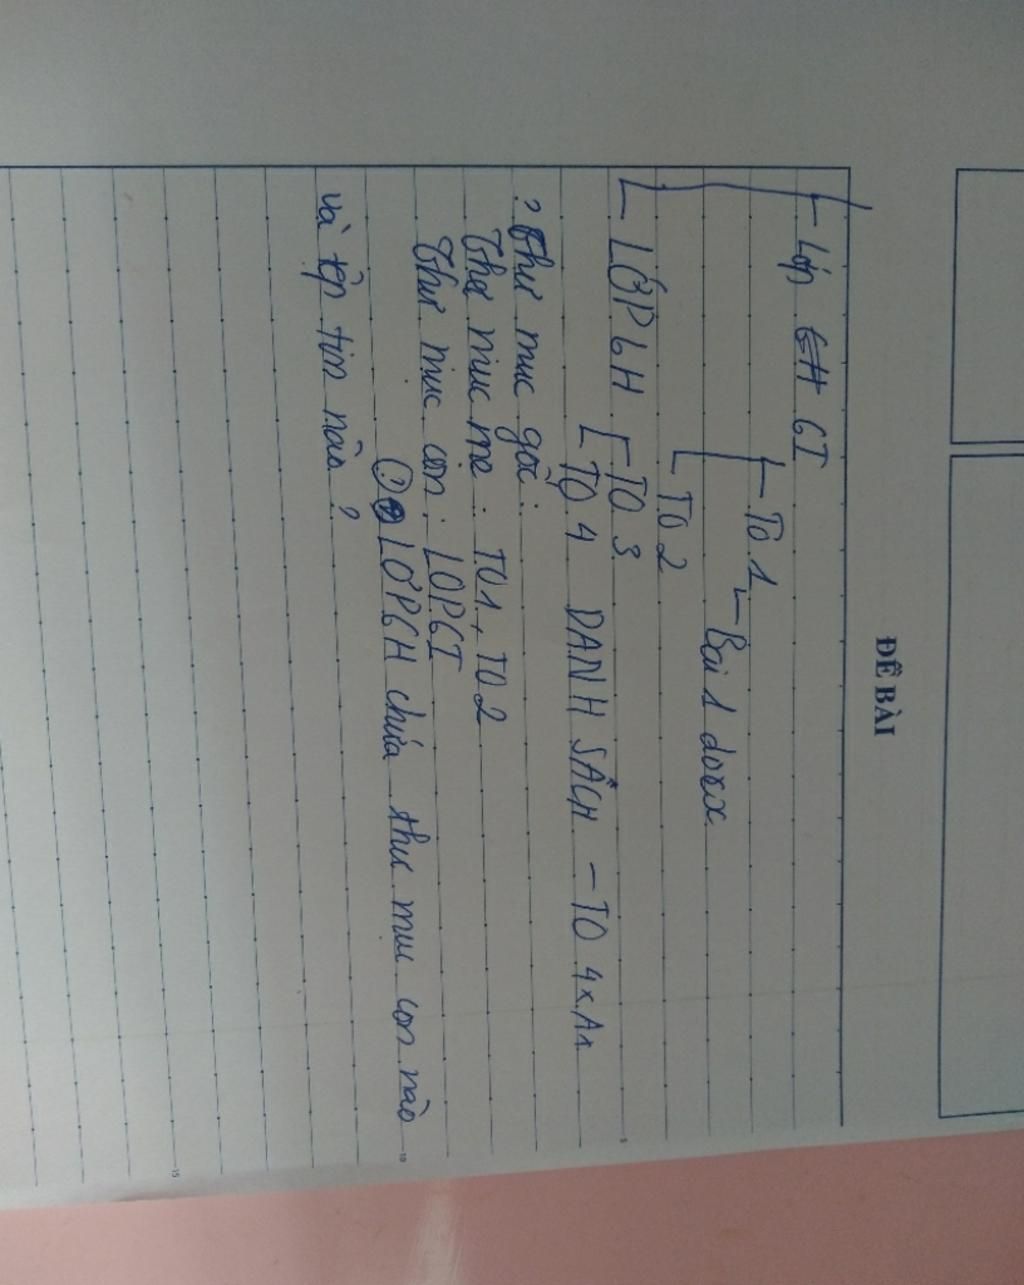 ĐỀ BÀI
Lớp 6I
TO 1
Bai 1 docx
TO 2
LỚP6H
TO 3
TO 4 DANH SÁCH - TO 4x.A1
? Thư mục gốc:
Thư mục mẹ: TO1, TO2
Thư mục con: LOP6I
? LỚP6H chứa thư mục con nào
và tệp tin nào?